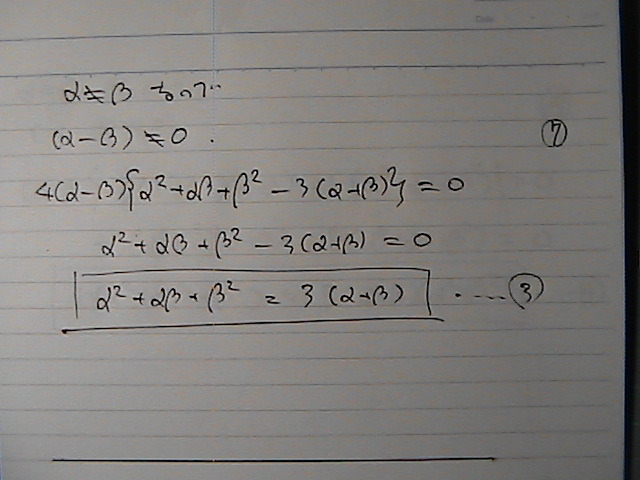 α≠β なので
(α-β)≠0.
⑦
4(α-β){α²+αβ+β²-3(α+β)}=0
α²+αβ+β²-3(α+β)=0
α²+αβ+β²=3(α+β) ‥‥③